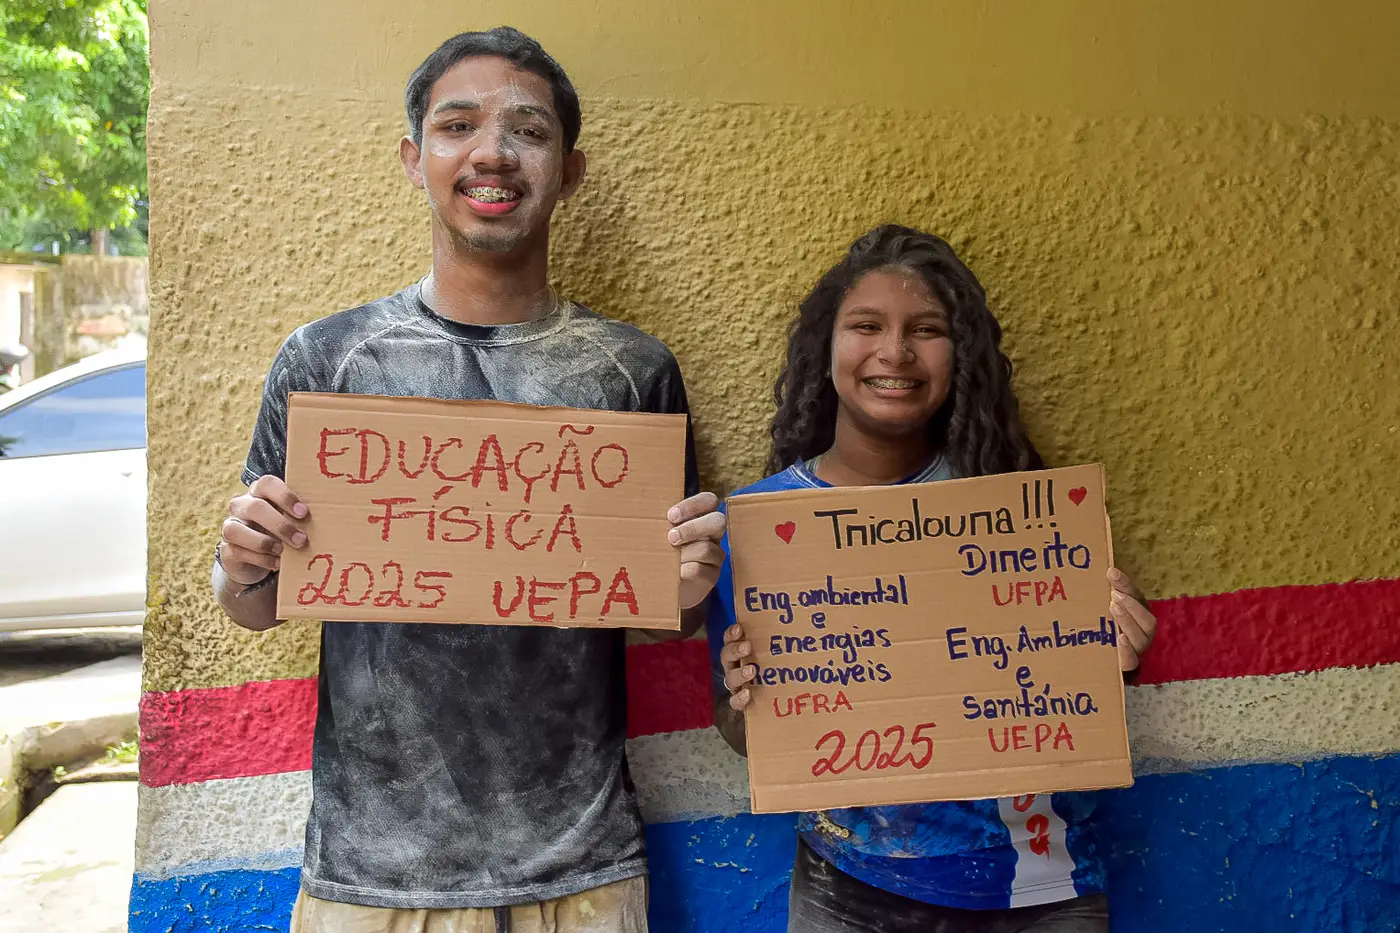 EDUCAÇÃO
FÍSICA
2025 UEPA
Tricaloura!!!
Direito
UFPA
Eng. ambiental
e
Energias
Renováveis
UFRA
Eng. Ambiental
e
Sanitária
UEPA
2025